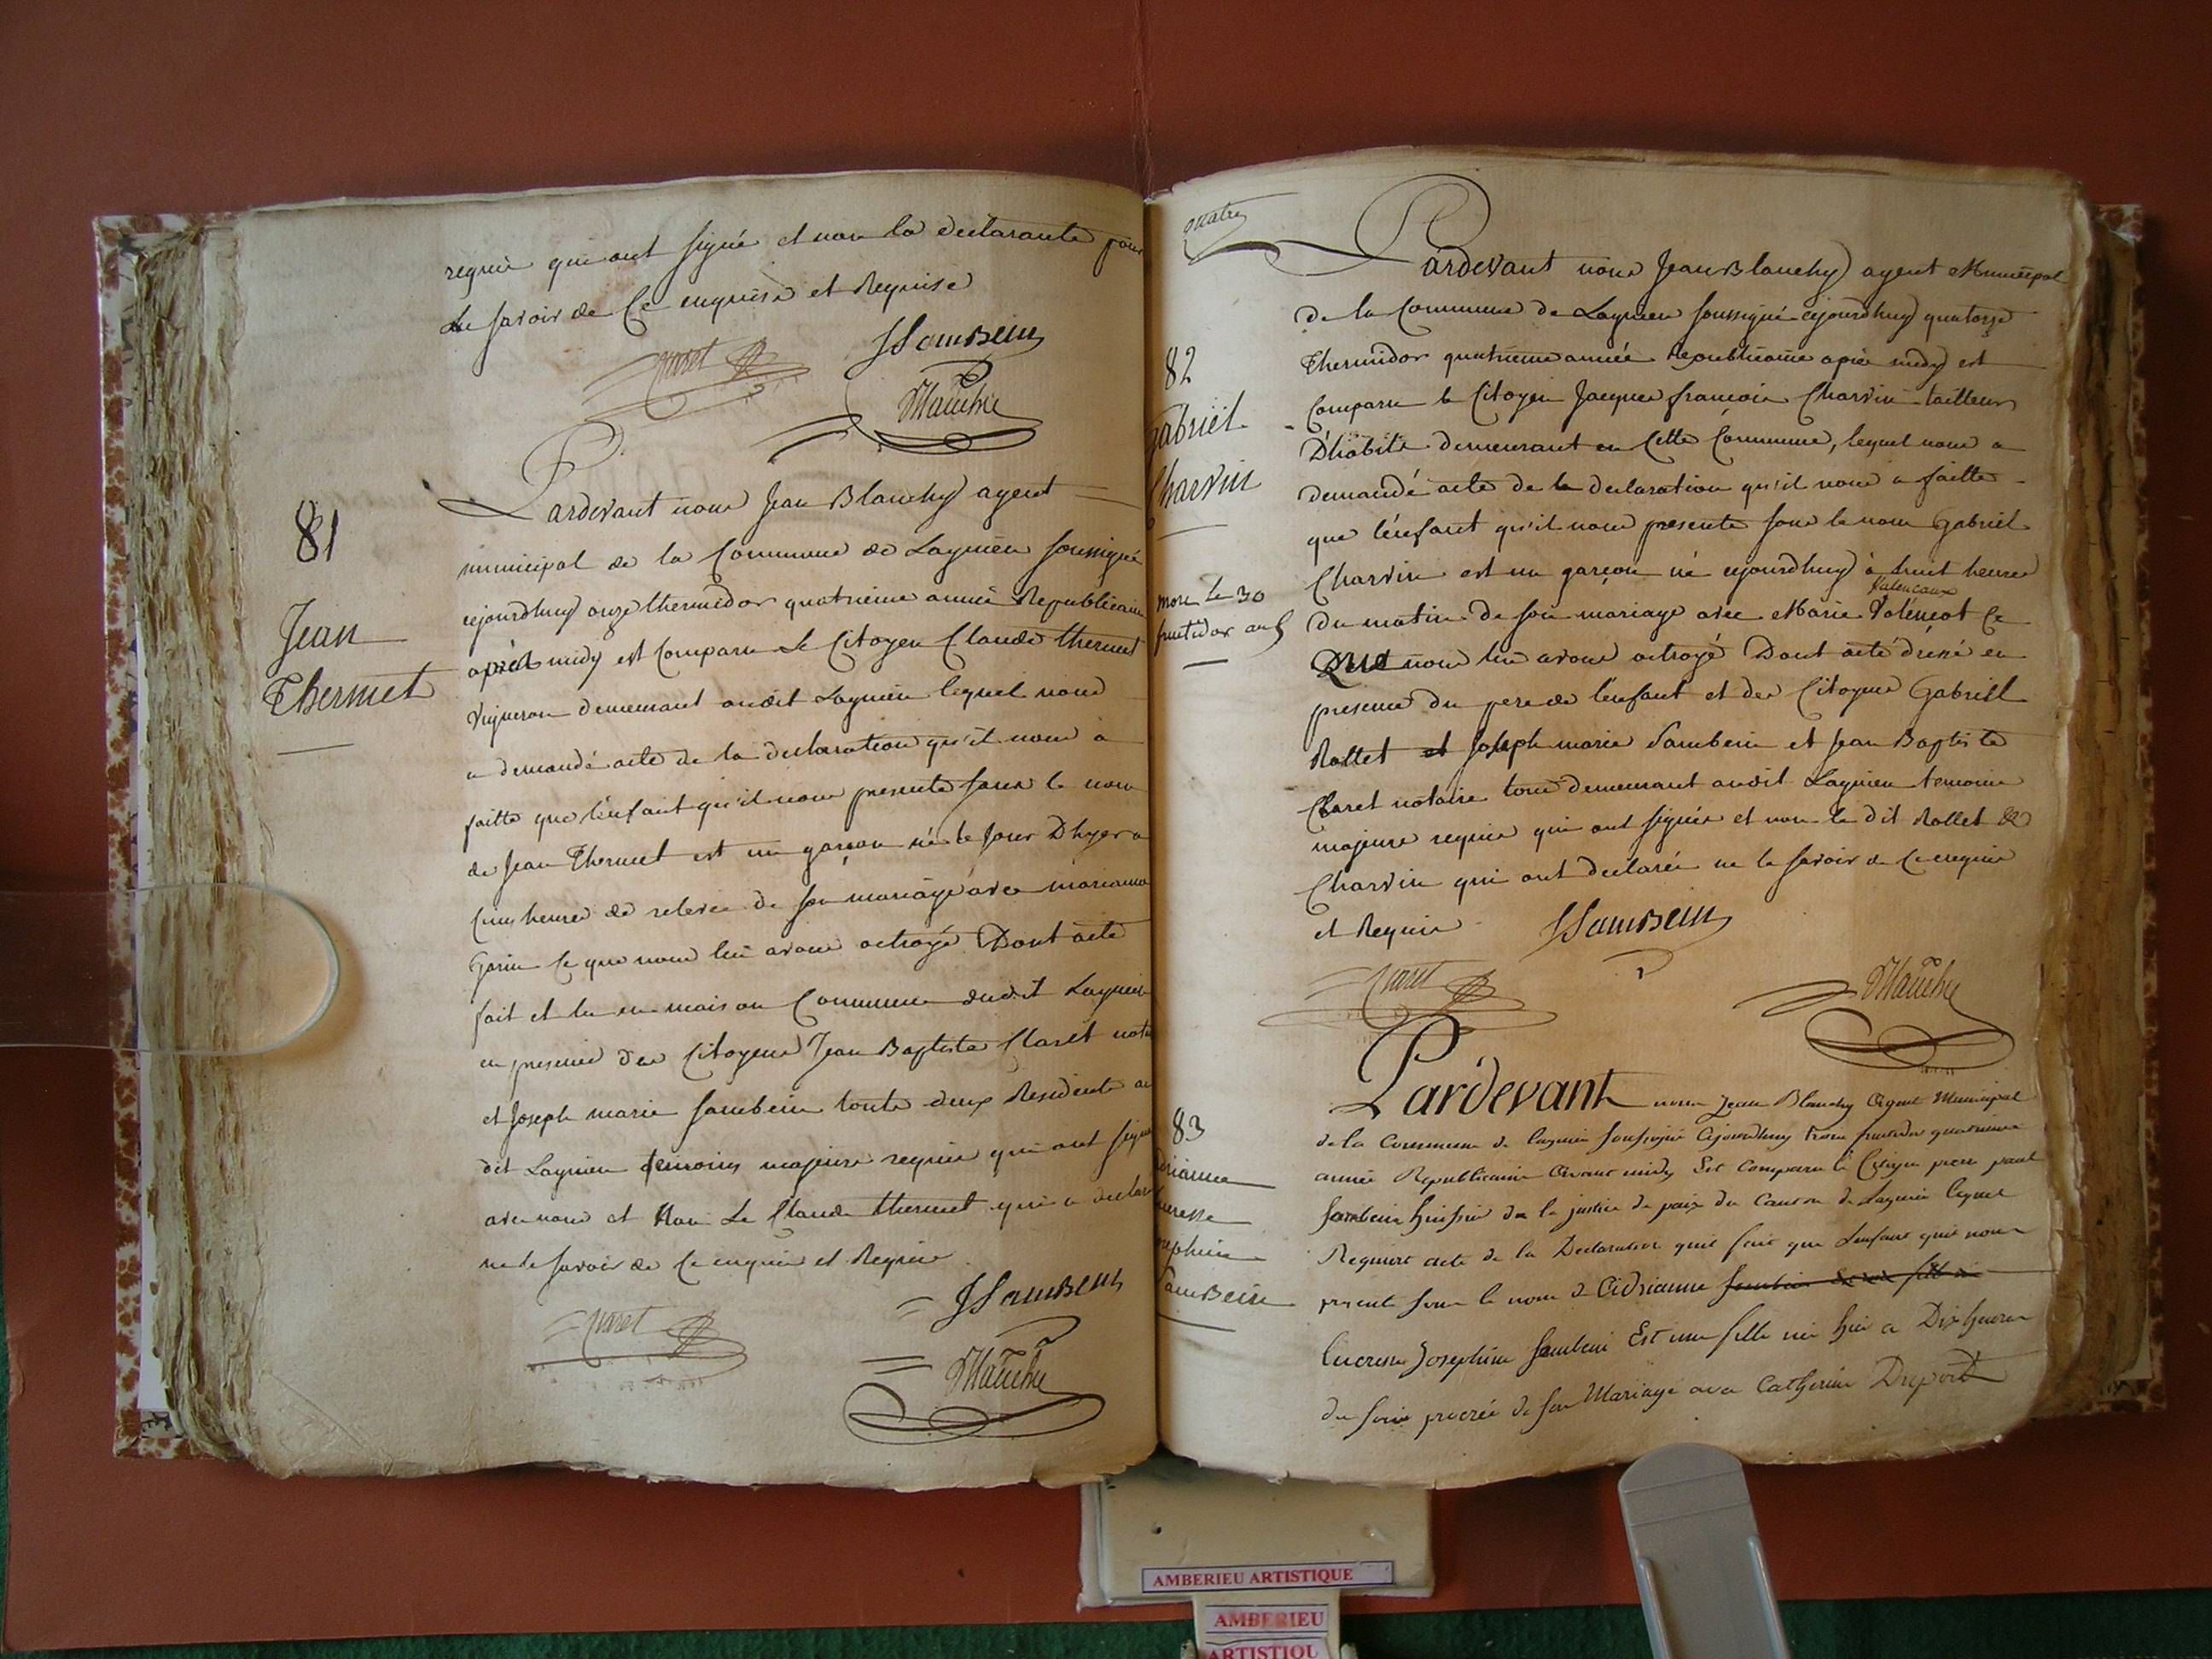 requis qui ont signé et non la declarante pour
Le savoir de Ce enquise et Requise
Claret
JSambein
Blanchy
81
Jean
Thermet
Pardevant nous Jean Blanchy agent
municipal de la Commune de Lagnieu soussigné
cejourdhuy onze thermidor quatrieme année Republicaine
après midy est Comparu Le Citoyen Claude thermet
Vigneron demeurant audit Lagnieu lequel nous
a demandé acte de la declaration qu'il nous a
faitte que l'enfant qu'il nous presente sous le nom
de Jean Thermet est un garçon né le jour D'hyer a
Cinq heures de relevée de son mariage avec marianne
Garin Ce que nous lui avons octroyé Dont acte
fait et lu en maison Commune dudit Lagnieu
en presence des Citoyens Jean Baptiste Claret notaire
et Joseph marie Sambein touts deux Residents au
dit Lagnieu temoins majeurs requis qui ont signé
avec nous et Non Le Claude thermet qui a declaré
ne le savoir de Ce enquis et Requis
Claret
JSambein
Blanchy
quatre
82
Gabriel
Charvin
mort le 30
fructidor an 5
Pardevant nous Jean Blanchy agent Municipal
de la Commune de Lagnieu soussigné cejourdhuy quatorze
Thermidor quatrieme année Republicaine après midy est
Comparu le Citoyen Jacques françois Charvin tailleur
D'habits demeurant en Cette Commune, lequel nous a
demandé acte de la declaration qu'il nous a faitte
que l'enfant qu'il nous presente sous le nom Gabriel
Charvin est un garçon né cejourdhuy à huit heures
Valencaux
du matin de son mariage avec Marie Valencot Ce
Que nous lui avons octroyé Dont acte dressé en
presence du pere de l'enfant et des Citoyens Gabriel
Rollet et Joseph marie Sambein et Jean Baptiste
Claret notaire tous demeurant audit Lagnieu temoins
majeurs requis qui ont signés et non le dit Rollet &
Charvin qui ont declarés ne le savoir de Ce enquis
et Requis
JSambein
Claret
Blanchy
83
drianne
ucresse
osephine
SamBein
Pardevant nous Jean Blanchy Agent Municipal
de la Commune de lagnieu soussigné Cejourdhuy treize fructidor quatrieme
année Republicaine Avant midy Est Comparu le Citoyen pierre paul
Sambein huissier de la justice de paix du Canton de Lagnieu lequel
Requiert acte de la Declaration quil fait que Lenfant quil nous
presente sous le nom de Adrianne
lucresse Josephine Sambein Est une fille née hier a Dix heures
du soir procréé de son Mariage avec Catherine Duport
AMBERIEU ARTISTIQUE
AMBERIEU
ARTISTIQU